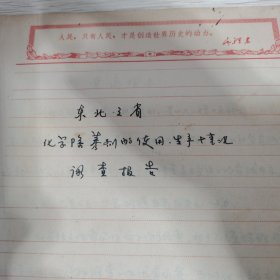 人民，只有人民，才是创造世界历史的动力。
毛泽东
东北三省
化学除莠剂的使用、生产情况
调查报告